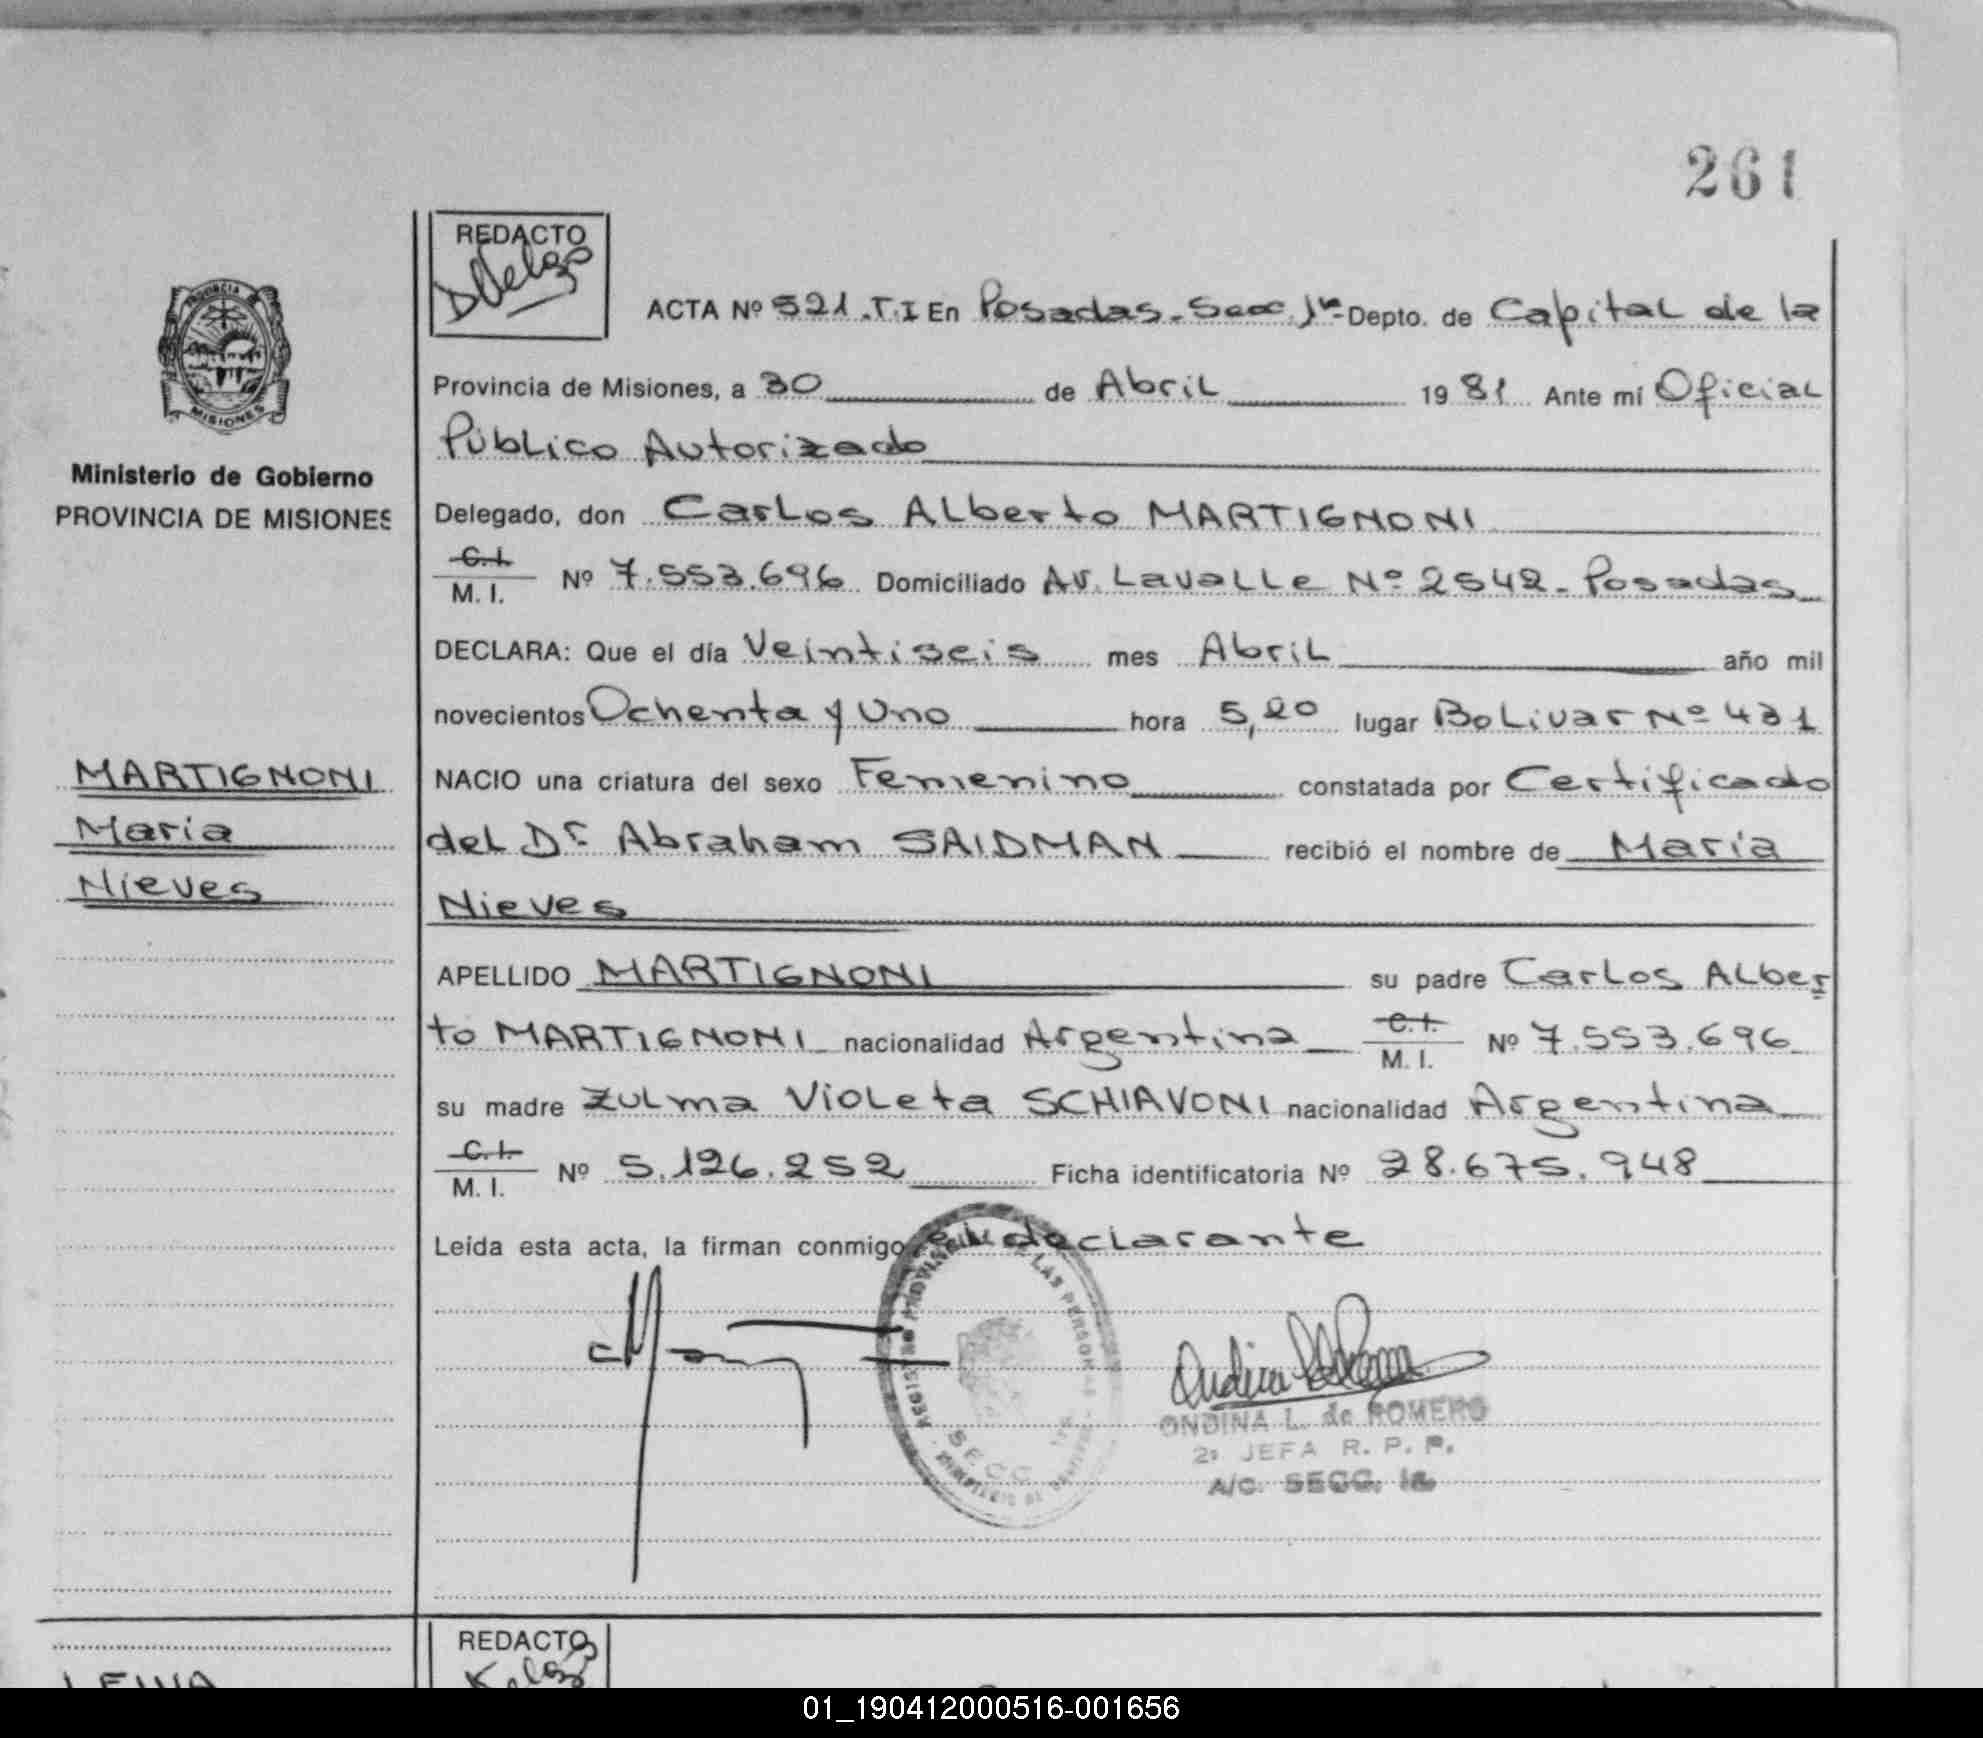 261
REDACTO
ACTA Nº 521.T.I En Posadas. Secc. 1ª Depto. de Capital de la
Provincia de Misiones, a 30 de Abril 1981 Ante mí Oficial
Público Autorizado
Ministerio de Gobierno
PROVINCIA DE MISIONES
Delegado, don Carlos Alberto MARTIGNONI
C.I.
M. I. Nº 7.553.696 Domiciliado Av. Lavalle Nº 2542 - Posadas
DECLARA: Que el día Veintiseis mes Abril año mil
novecientos Ochenta y Uno hora 5,20 lugar Bolivar Nº 431
MARTIGNONI
María
Nieves
NACIO una criatura del sexo Femenino constatada por Certificado
del Dr Abraham SAIDMAN recibió el nombre de María
Nieves
APELLIDO MARTIGNONI su padre Carlos Alber
to MARTIGNONI nacionalidad Argentina C.I. M. I. Nº 7.553.696
su madre Zulma Violeta SCHIAVONI nacionalidad Argentina
C.I.
M. I. Nº 5.126.252 Ficha identificatoria Nº 28.675.948
Leída esta acta, la firman conmigo el declarante
REGISTRO PROVINCIAL DE LAS PERSONAS
SECC
ONDINA L. de ROMERO
2ª JEFA R. P. P.
A/C. SECC. 1a
REDACTO
01_190412000516-001656